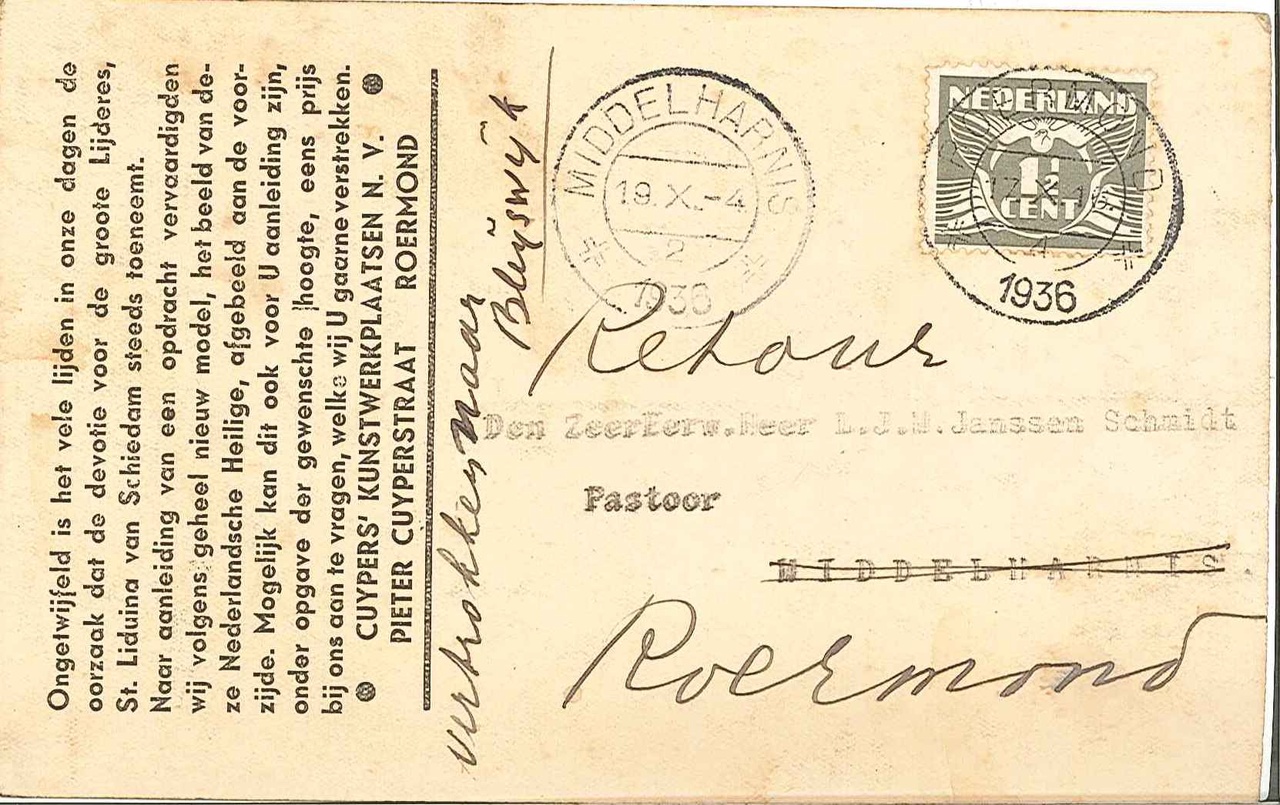 Ongetwijfeld is het vele lijden in onze dagen de
oorzaak dat de devotie voor de groote Lijderes,
St. Liduina van Schiedam steeds toeneemt.
Naar aanleiding van een opdracht vervaardigden
wij volgens geheel nieuw model, het beeld van de-
ze Nederlandsche Heilige, afgebeeld aan de voor-
zijde. Mogelijk kan dit ook voor U aanleiding zijn,
onder opgave der gewenschte hoogte, eens prijs
bij ons aan te vragen, welke wij U gaarne verstrekken.
CUYPERS' KUNSTWERKPLAATSEN N. V.
PIETER CUYPERSTRAAT ROERMOND
vertrokken naar
Bleijswijk
MIDDELHARNIS
19.X.-4
2
1936
NEDERLAND
1½
CENT
ROERMOND
17.X.
4
1936
Retour
Den ZeerEerw.Heer L.J.M.Janssen Schmidt
Pastoor
MIDDELHARNIS.
Roermond